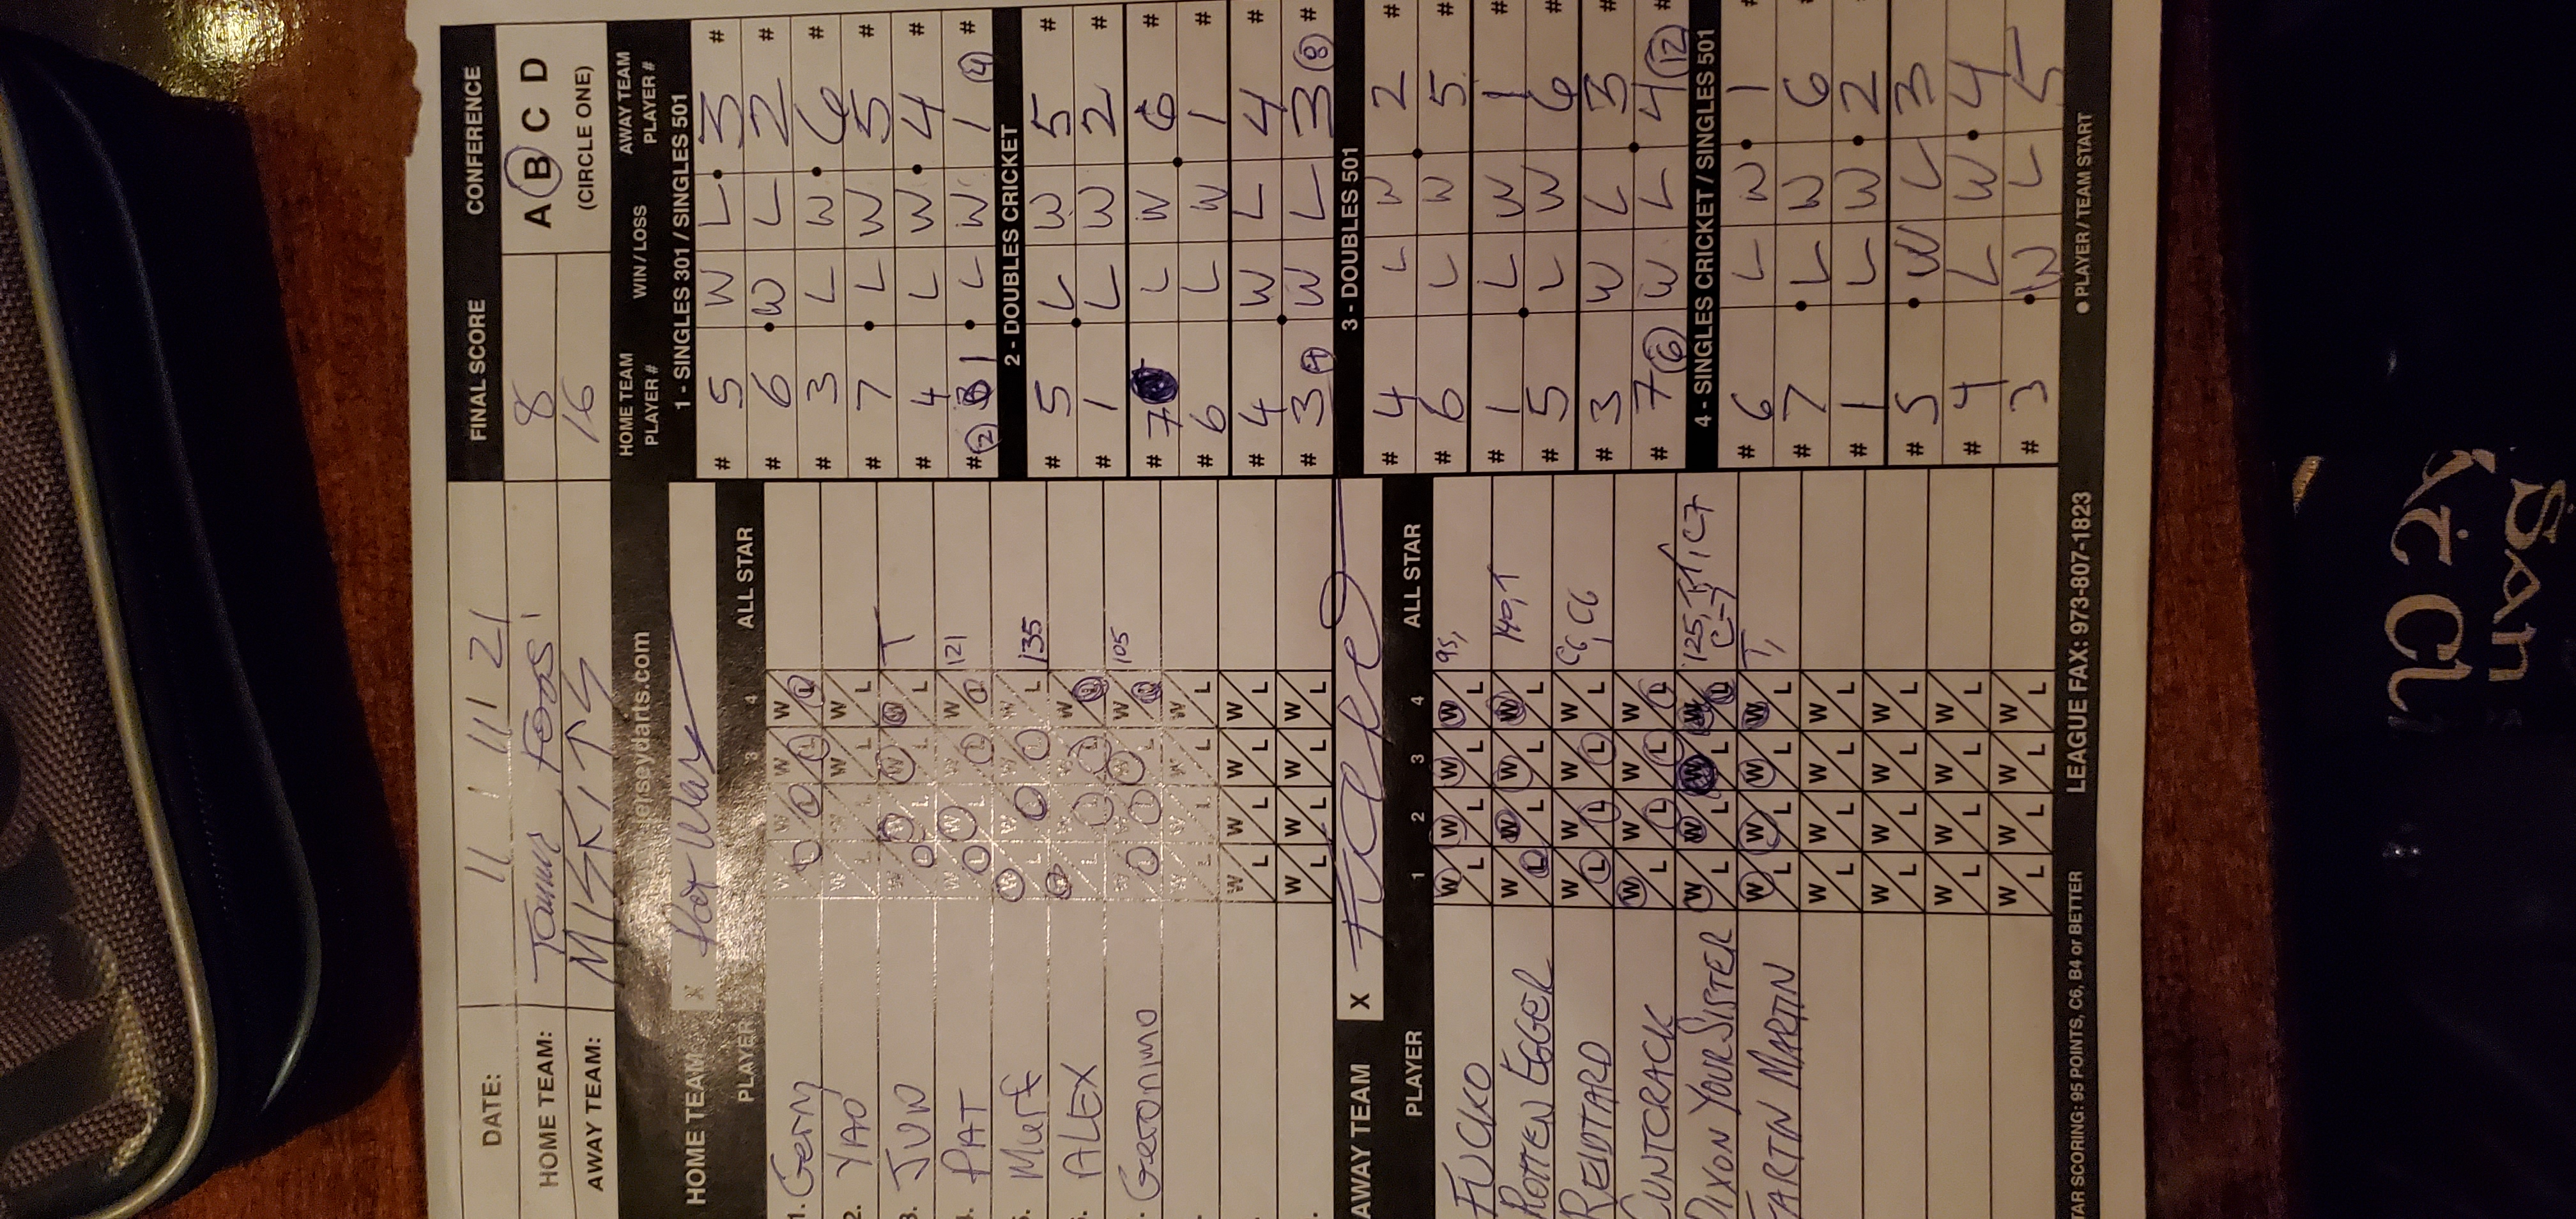 DATE: 11 / 11 / 21
FINAL SCORE
CONFERENCE
HOME TEAM: 8
AWAY TEAM: MISFITS 16
A B C D
(CIRCLE ONE)
jerseydarts.com
HOME TEAM X
PLAYER 1 2 3 4 ALL STAR
1. Gerry W L W L W L W L
2. YAO W L W L W L W L
3. JUN W L W L W L W L T
4. PAT W L W L W L W L 121
5. Murf W L W L W L W L 135
6. ALEX W L W L W L W L
. Geronimo W L W L W L W L 105
. W L W L W L W L
. W L W L W L W L
. W L W L W L W L
AWAY TEAM X
PLAYER 1 2 3 4 ALL STAR
FUCKO W L W L W L W L 95,
ROTTEN EGGER W L W L W L W L 140, T
REIDTARD W L W L W L W L C6, C6
CUNTCRACK W L W L W L W L
DIXON YOUR SISTER W L W L W L W L 125, C7
FARTIN MARTIN W L W L W L W L T,
W L W L W L W L
W L W L W L W L
W L W L W L W L
W L W L W L W L
STAR SCORING: 95 POINTS, C6, B4 or BETTER
LEAGUE FAX: 973-807-1823
HOME TEAM PLAYER # WIN / LOSS AWAY TEAM PLAYER #
1 - SINGLES 301 / SINGLES 501
# 5 W L 3 #
# 6 W L 2 #
# 3 L W 6 #
# 7 L W 5 #
# 4 L W 4 #
# 2 1 L W 1 4 #
2 - DOUBLES CRICKET
# 5 L W 5 #
# 1 L W 2 #
# 7 L W 6 #
# 6 L W 1 #
# 4 W L 4 #
# 3 4 W L 3 8 #
3 - DOUBLES 501
# 4 L W 2 #
# 6 L W 5 #
# 1 L W 1 #
# 5 L W 6 #
# 3 W L 3 #
# 7 6 W L 4 12 #
4 - SINGLES CRICKET / SINGLES 501
# 6 L W 1 #
# 7 L W 6
# 1 L W 2
# 5 W L 3
# 4 L W 4
# 3 W L 5
● PLAYER / TEAM START